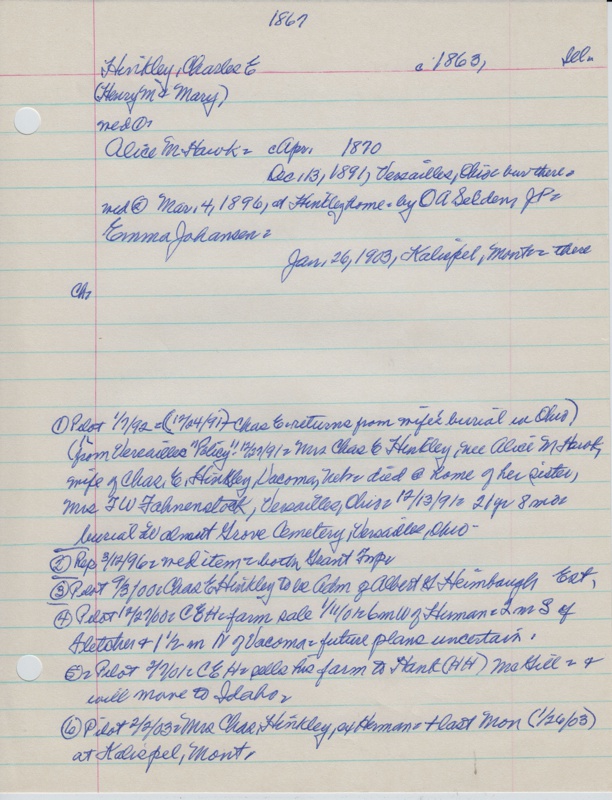 1867
Hinkley, Charles E c 1863, Ill.
(Henry M & Mary)
med ①
Alice M Hawk = c Apr. 1870
Dec. 13, 1891, Versailles, Ohio = bur there =
med ② Mar. 4, 1896, at Hinkley home = by O A Selden, JP =
Emma Johansen =
Jan. 26, 1903, Kalispel, Mont = there
Ch:
① Pilot 1/7/92 = (12/24/91) = Chas E returns from wife's burial in Ohio)
(from Versailles "Policy": 12/17/91 = Mrs Chas E Hinkley, nee Alice M Hawk,
wife of Chas. E. Hinkley, Vacoma, Neb = died @ home of her sister,
Mrs T W Fahnenstock, Versailles, Ohio = 12/13/91 = 21 yr 8 mo =
burial Walnut Grove Cemetery, Versailles, Ohio -
② Rep 3/12/96 = wed item = both Grant Twp
③ Pilot 9/3/00 = Chas E Hinkley to be Adm of Albert G Heimbaugh Est.
④ Pilot 12/27/00 = C E H = farm sale 1/14/01 = 6 m W of Herman = 2 m S of
Fletcher & 1 1/2 m N of Vacoma = future plans uncertain.
5 = Pilot 2/7/01 = C E H = sells his farm to Hank (HH) McGill = &
will move to Idaho =
⑥ Pilot 2/5/03 = Mrs Chas. Hinkley, ex Herman = + last Mon (1/26/03)
at Kalispel, Mont.